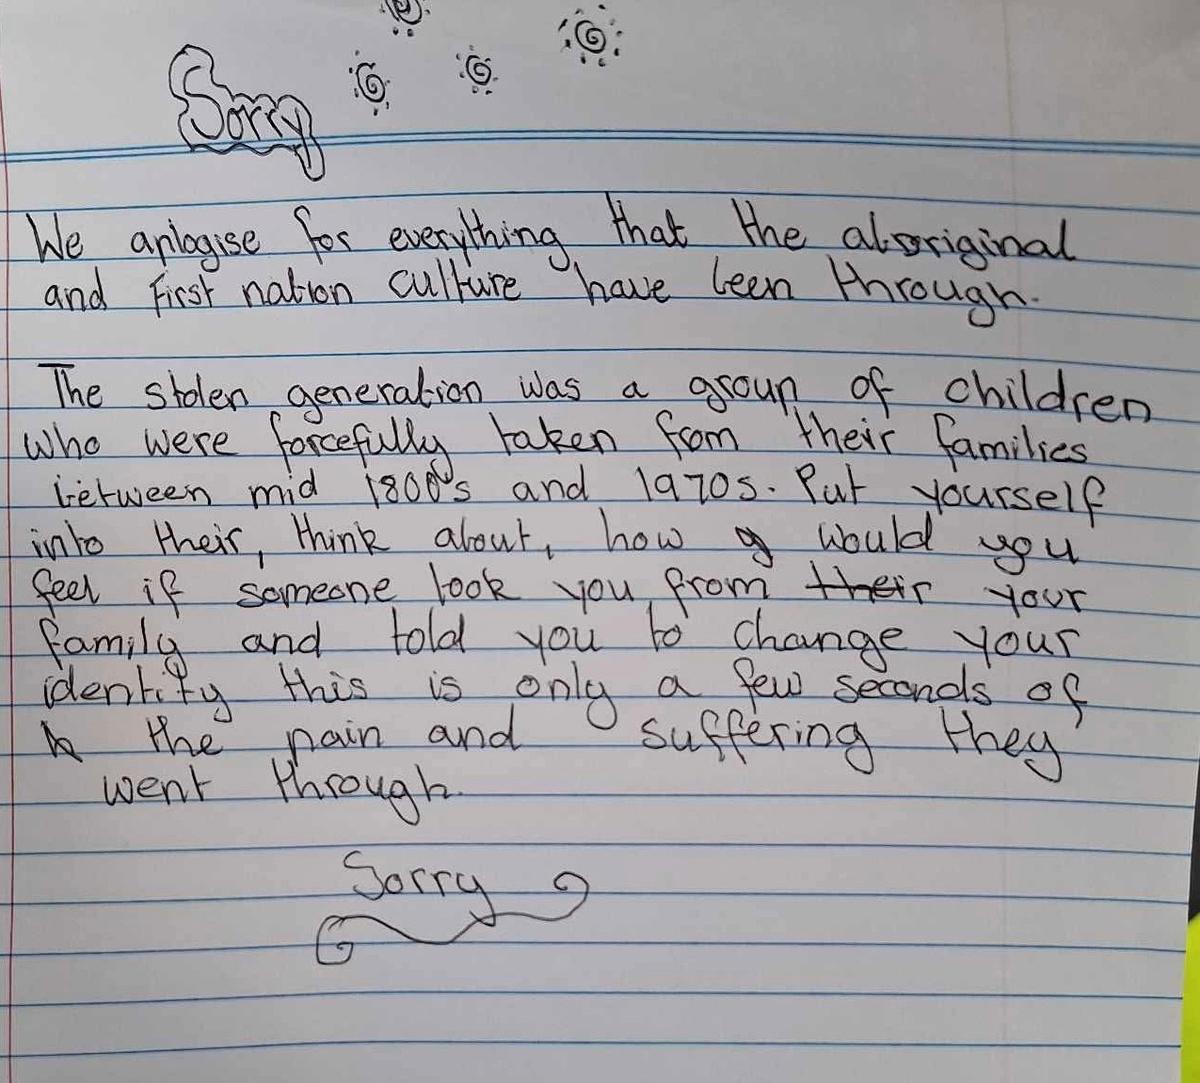 Sorry
We aplogise for everything that the aboriginal
and first nation culture have been through.
The stolen generation was a group of children
who were forcefully taken from their families
between mid 1800's and 1970s. Put yourself
into their, think about, how would you
feel if someone took you from their your
family and told you to change your
identity this is only a few seconds of
the pain and suffering they
went through.
Sorry